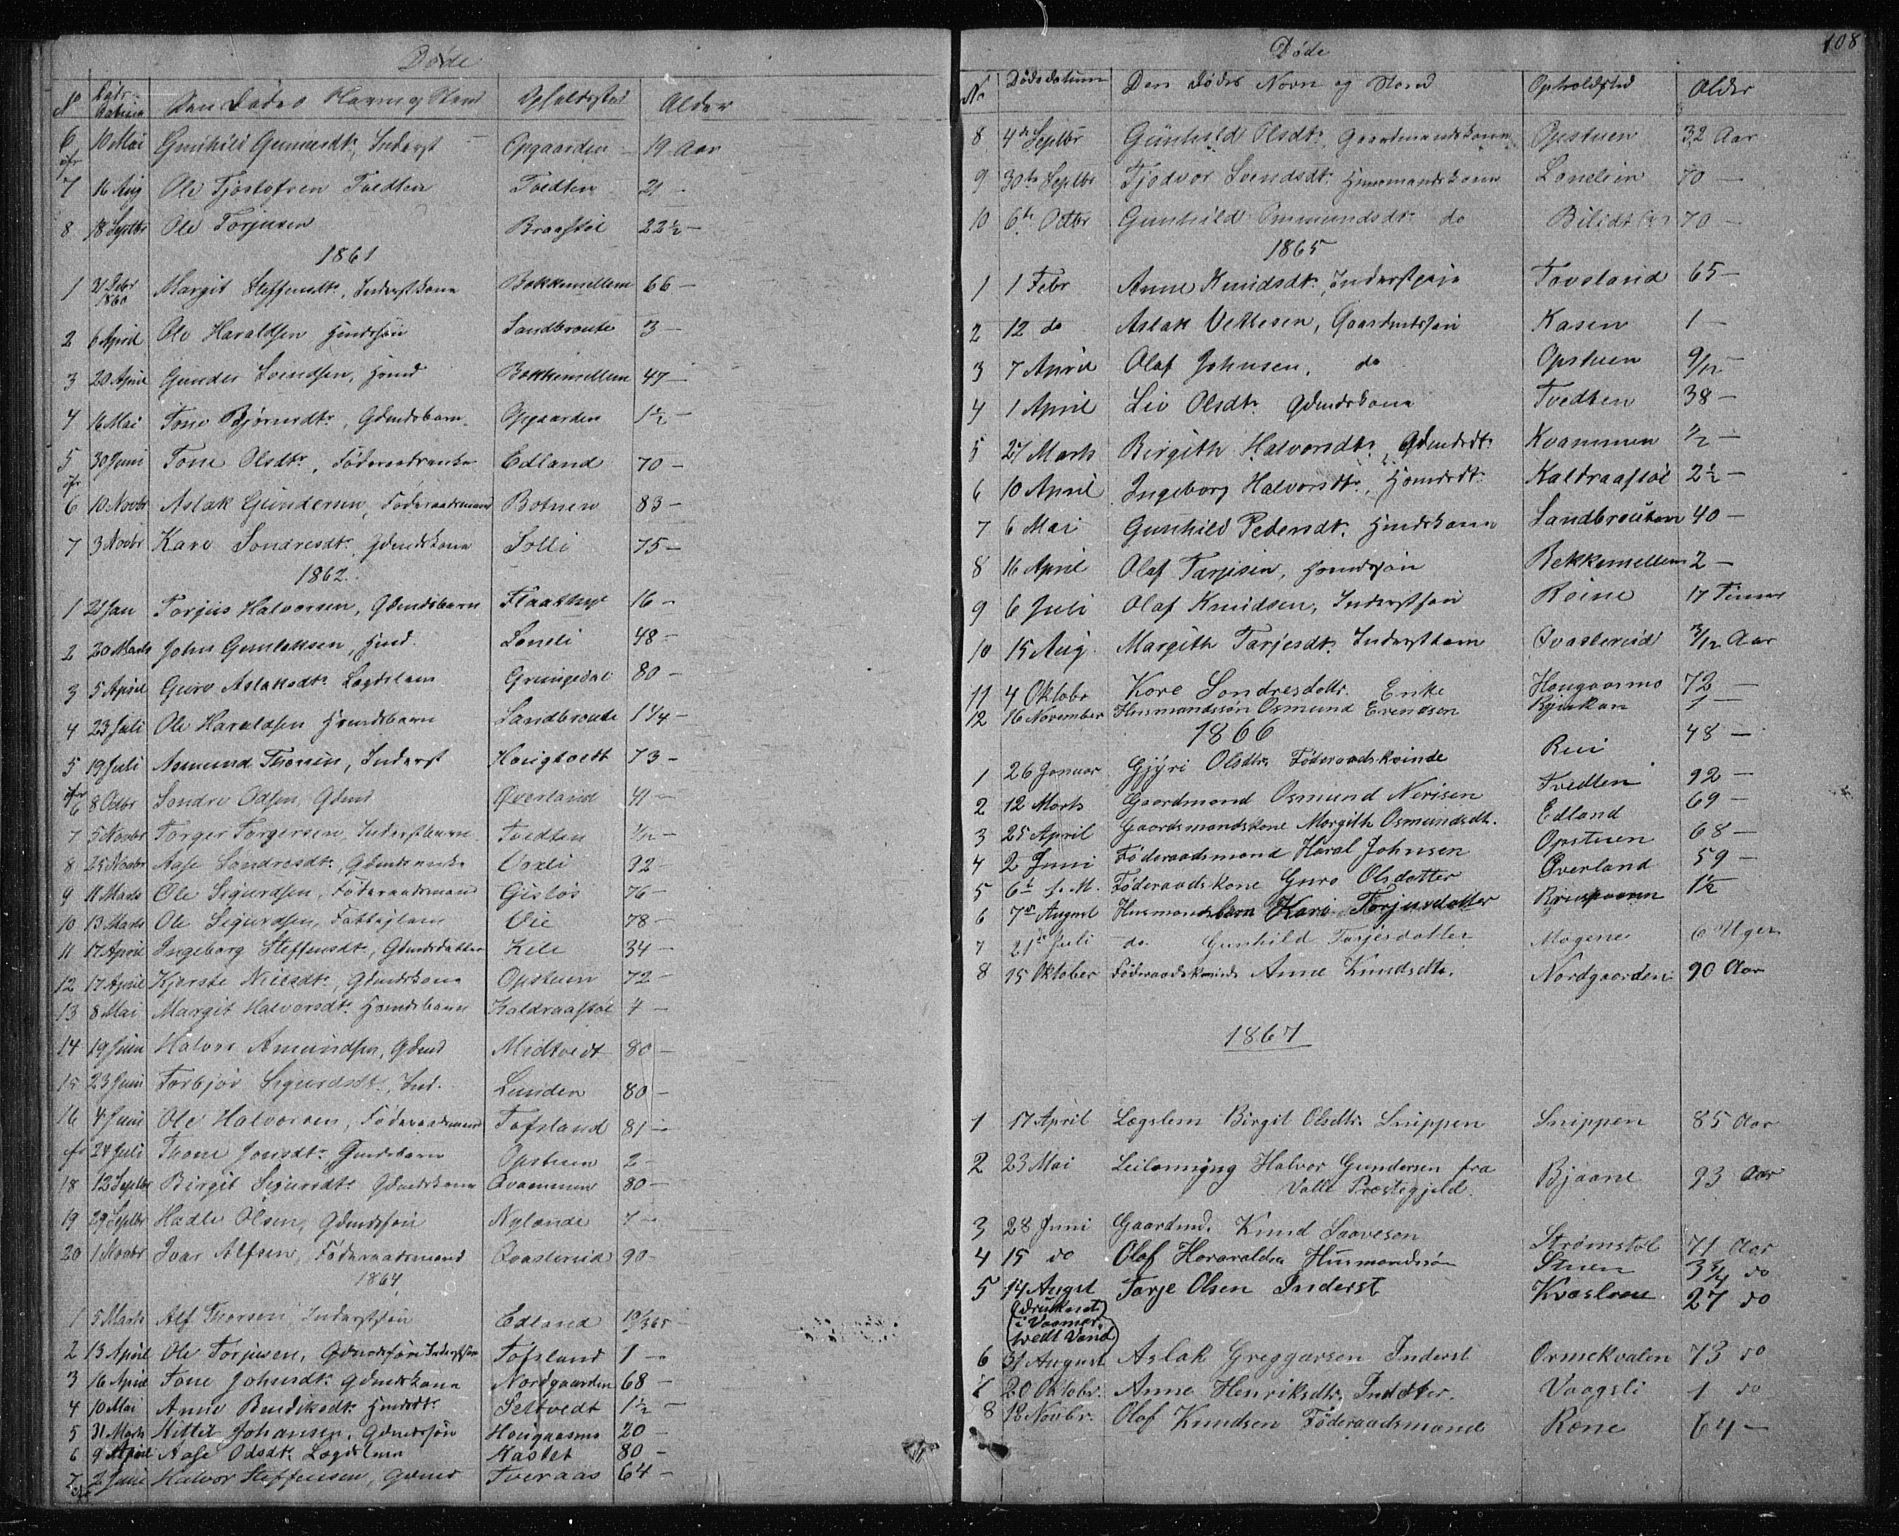 Døde
No Døds-datum Den Dødes Navn og Stand Opholdssted Alder
6 10 Mai Gunhild Gunnersdtr, Inderst Opgaarden 19 Aar
7 16 Aug Ole Tjostofsen Tvedten Tvedten 21 —
8 18 Septbr Ole Torjusen Braafstøl 22½ —
1861
1 31 Debr 1860 Margit Steffensdtr, Inderstkone Bakkemellem 66 —
2 6 April Ole Haraldsen Hmdssøn Sandbroute 3 —
3 20 April Gunder Svendsen, Hmd Bakkemellem 47 —
4 16 Mai Tone Bjørnsdtr, Gdmdsbarn Opgaarden 1½ —
5 30 Juni Tone Olsdtr, Føderaadsenke Edland 70 —
6 10 Novbr Aslak Gundersen, Føderaadsmand Botnen 83 —
7 3 Novbr Kare Sondresdtr, Gdmdskone Solli 75 —
1862
1 21 Jan Torjus Halvorsen, Gdmdsbarn 16 —
2 20 Marts John Gunleksen, Hmd Loneli 48 —
3 5 April Guro Aslaksdtr Lægdslem Grungedal 80 —
4 23 Juli Ole Haraldsen Hmdsbarn Sandbroute 1¼ —
5 19 Juli Asmund Thorsen, Inderst Hougtvedt 73 —
6 8 Octbr Sondre Odsen, Gdmd Øverland 41 —
7 5 Novbr Torger Torgersen, Inderstbarn Tvedten 1/12 —
8 25 Novbr Aase Sondresdtr, Gdmdsenke 92 —
9 11 Marts Ole Sigurdsen, Føderaadsmand Gisløs 76 —
10 13 Marts Ole Sigurdsen, Fattiglem Vie 78 —
11 17 April Ingeborg Steffensdtr, Gdmdsdatter Kile 34 —
12 17 April Kjerste Nielsdtr, Gdmdskone Opstuen 72 —
13 8 Mai Margit Halvorsdtr Hmdsbarn Kaldraafstøl 4 —
14 19 Juni Halvor Amundsen, Gdmd Midtvedt 80 —
15 23 Juni Torbjør Sigurdsdtr, Ind. Lunden 80 —
16 4 Juni Ole Halvorsen, Føderaadsmand Tofsland 81 —
24 Juli Thone Jonsdtr Gmdsbarn Opstuen 2 —
18 12 Septbr Birgit Sigurdsdtr Gdmdskone Qvammen 80 —
19 29 Septbr Hadle Olsen, Gdmdssøn Nylande 7 —
20 1 Novbr Ivar Alfsen, Føderaadsmand Qvasterud 90 —
1864
1 5 Marts Alf Thorsen, Inderstsøn Edland 19/365
2 13 April Ole Torjusen, Inderstsøn Tofsland 1 —
3 16 April Tone Johnsdtr Gdmdskone Nordgaarden 68 —
4 10 Mai Anne Bendiksdtr Hmdsdtr 1½ —
5 31 Marts Kittil Johansen, Gdmdssøn Hougaasmo 20 —
6 9 April Aase Odsdtr Lægdslem Haslet 80 —
7 2 Juni Halvor Steffensen, Gdmd Tveraas 64 —
108
Døde
No Dødsdatum Den Dødes Navn og Stand Opholdsted Alder
8 4de Septbr Gunhild Olsdtr, Gaardmandskone Opstuen 32 Aar
9 30te Septbr Tjodvor Svendsdtr Husmandskone 70 —
10 6te Octbr Gunhild Ommundsdtr do 70 —
1865
1 1 Febr Anne Knudsdtr, Tovsland 65 —
2 12 do Aslak Vetlesen, Gaardmdssøn Kasen 1 —
3 7 April Olaf Johnsen, do Opstuen 9/12 —
4 1 April Liv Olsdtr Gdmdskone Tvedten 38 —
5 27 Marts Birgith Halvorsdtr, Gdmdsdtr Kvammen ½ —
6 10 April Ingeborg Halvorsdtr, Hmdsdtr Kaldraafstøl 2½ —
7 6 Mai Gunhild Pedersdtr. Hmdskone Sandbrouten 40 —
8 16 April Olaf Tarjesen, Hmdssøn Bekkemellem 2 —
9 6 Juli Olaf Knudsen, Inderstsøn Roine 17 Timer
10 15 Aug. Margith Tarjesdtr. Inderstbarn Qvasterud 3/12 Aar
11 4 Oktobr Kare Sondresdottr. Enke Hougaasmo 72 —
12 16 November Husmandssøn Osmund Evendsen Bjørkan 7 —
1866
1 26 Januar Gjyri Olsdtr Føderaadskvinde Bui 48 —
2 12 Marts Gaardmand Osmund Nerisen Tvedten 92 —
3 25 April Gaardsmandskone Margith Osmundsdtr. Edland 69 —
4 2 Juni Føderaadsmand Haral Johnsen Opstuen 68 —
5 6te f. M. Føderaadskone Guro Olsdatter Øverland 59 —
6 7de August Husmandsbarn Kari Torjusdatter 1½
7 21de Juli do Gunhild Tarjesdatter Mogene 6 Uger
8 15 Oktober Føderaadskvinde Anne Knudsdtr. Nordgaarden 90 Aar
1867
1 17 April Lægslem Birgit Olsdtr. Snippen Snippen 85 Aar
2 23 Mai Leilænning Halvor Gundersen fra
Valle Præstegjeld. Bjaane 93 Aar
3 28 Juni Gaardmd. Knud Saaveson Strømstøl 71 Aar
4 15 do Olaf Haraldsen Husmandssøn Stuen 3¾ do
5 14 August Tarje Olsen Inderst Kvaslene 27 do
(druknet
i Vaamar-
tvedt Vand)
6 31 August Aslak Greggarsen Inderst Ormekvalen 73 do
7 20 Oktobr. Anne Henriksdtr, Inddtr. Vaagsli 1 do
8 18 Novbr. Olaf Knudsen Føderaadsmand Rone 64 —